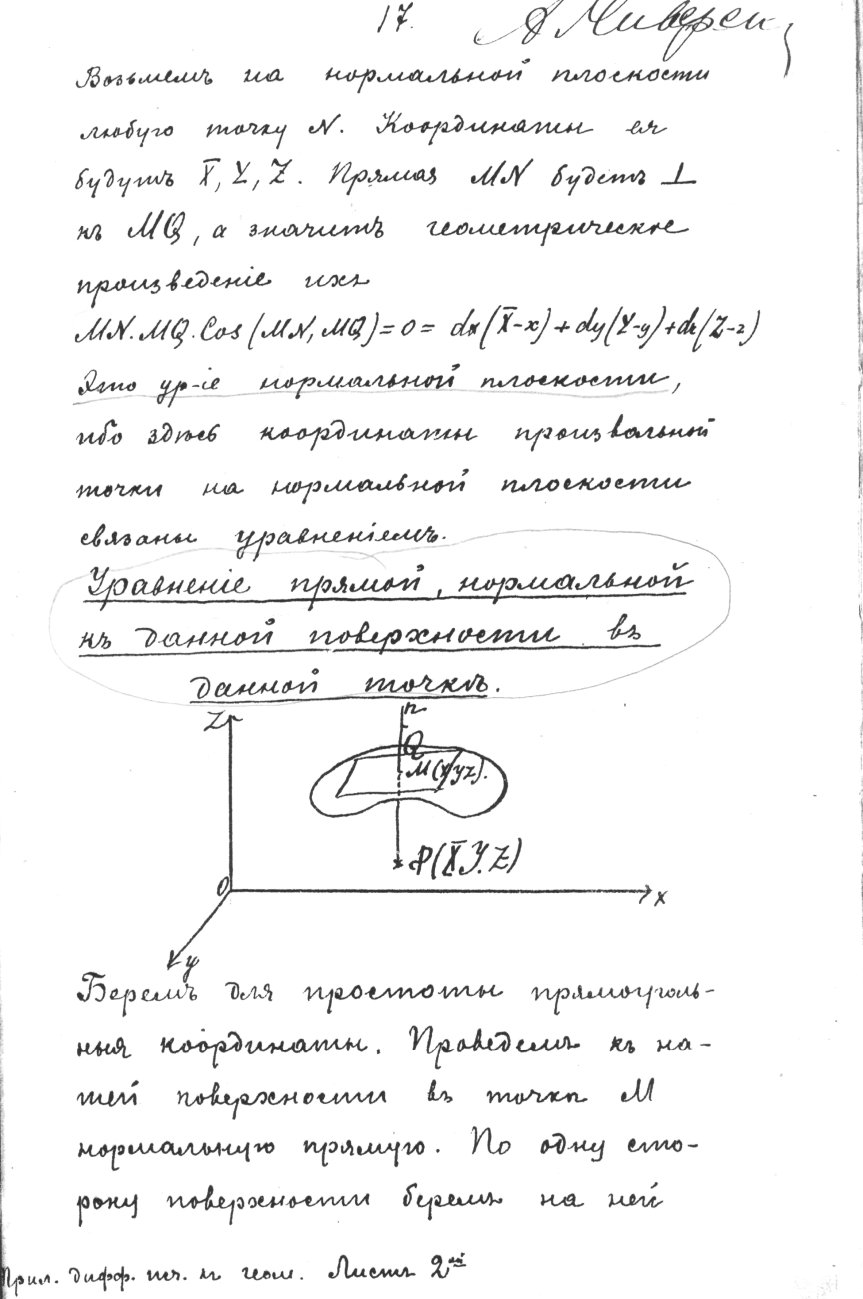 17.
Возьмемъ на нормальной плоскости
любую точку N. Координаты ея
будутъ X̄, Y, Z. Прямая MN будетъ ⊥
къ MQ, а значитъ геометрическое
произведеніе ихъ
MN.MQ.Cos(MN,MQ)=0= dx(X̄-x)+dy(Y-y)+dz(Z-z)
Это ур-іе нормальной плоскости,
ибо здѣсь координаты произвольной
точки на нормальной плоскости
связаны уравненіемъ.
Уравненіе прямой, нормальной
къ данной поверхности въ
данной точкѣ.
Z
n
Q
M(xyz).
P(X̄.Y.Z)
O
x
y
Беремъ для простоты прямоуголь-
ныя координаты. Проведемъ къ на-
шей поверхности въ точкѣ M
нормальную прямую. По одну сто-
рону поверхности беремъ на ней
Прил. дифф. исч. къ геом. Листъ 2ой